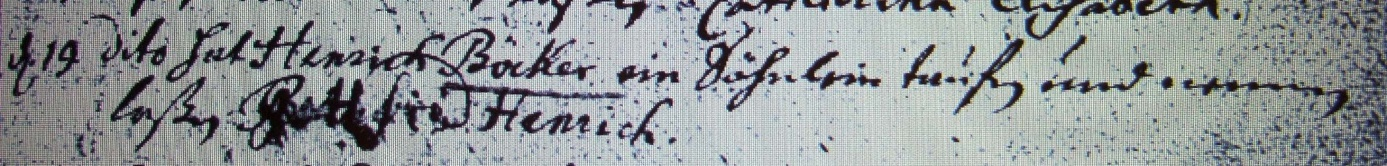 Catharina Elisabeth.
d. 19 dito hat Henrich Böcker ein Söhnlein taufen und nennen
laßen Henrich.